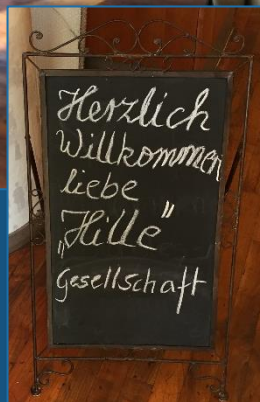 Herzlich
Willkommen
liebe
„Hille"
Gesellschaft